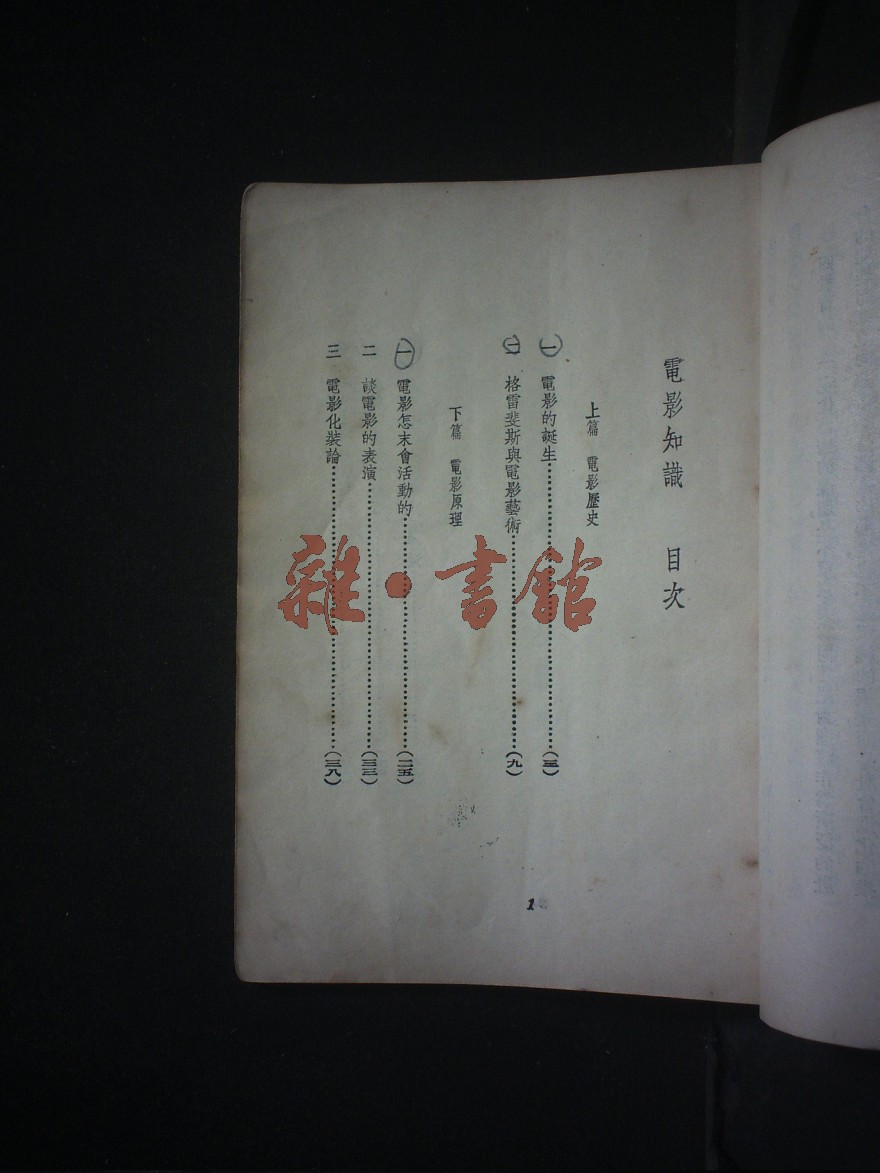 電影知識 目次
上篇 電影歷史
一 電影的誕生……(三)
二 格雷斐斯與電影藝術……(九)
下篇 電影原理
一 電影怎末會活動的……(二五)
二 談電影的表演……(三三)
三 電影化裝論……(三八)
1
雜·書館